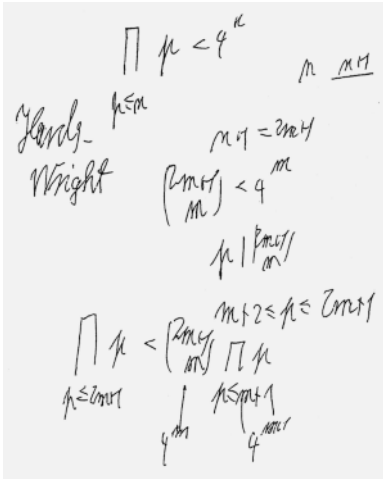 ∏ p < 4^n
p≤n
n n+1
Hardy-
Wright
n+1 = 2m+1
(2m+1 m) < 4^m
p | (2m+1 m)
m+2 ≤ p ≤ 2m+1
∏ p < (2m+1 m) ∏ p
p≤2m+1 p≤m+1
4^m 4^m+1